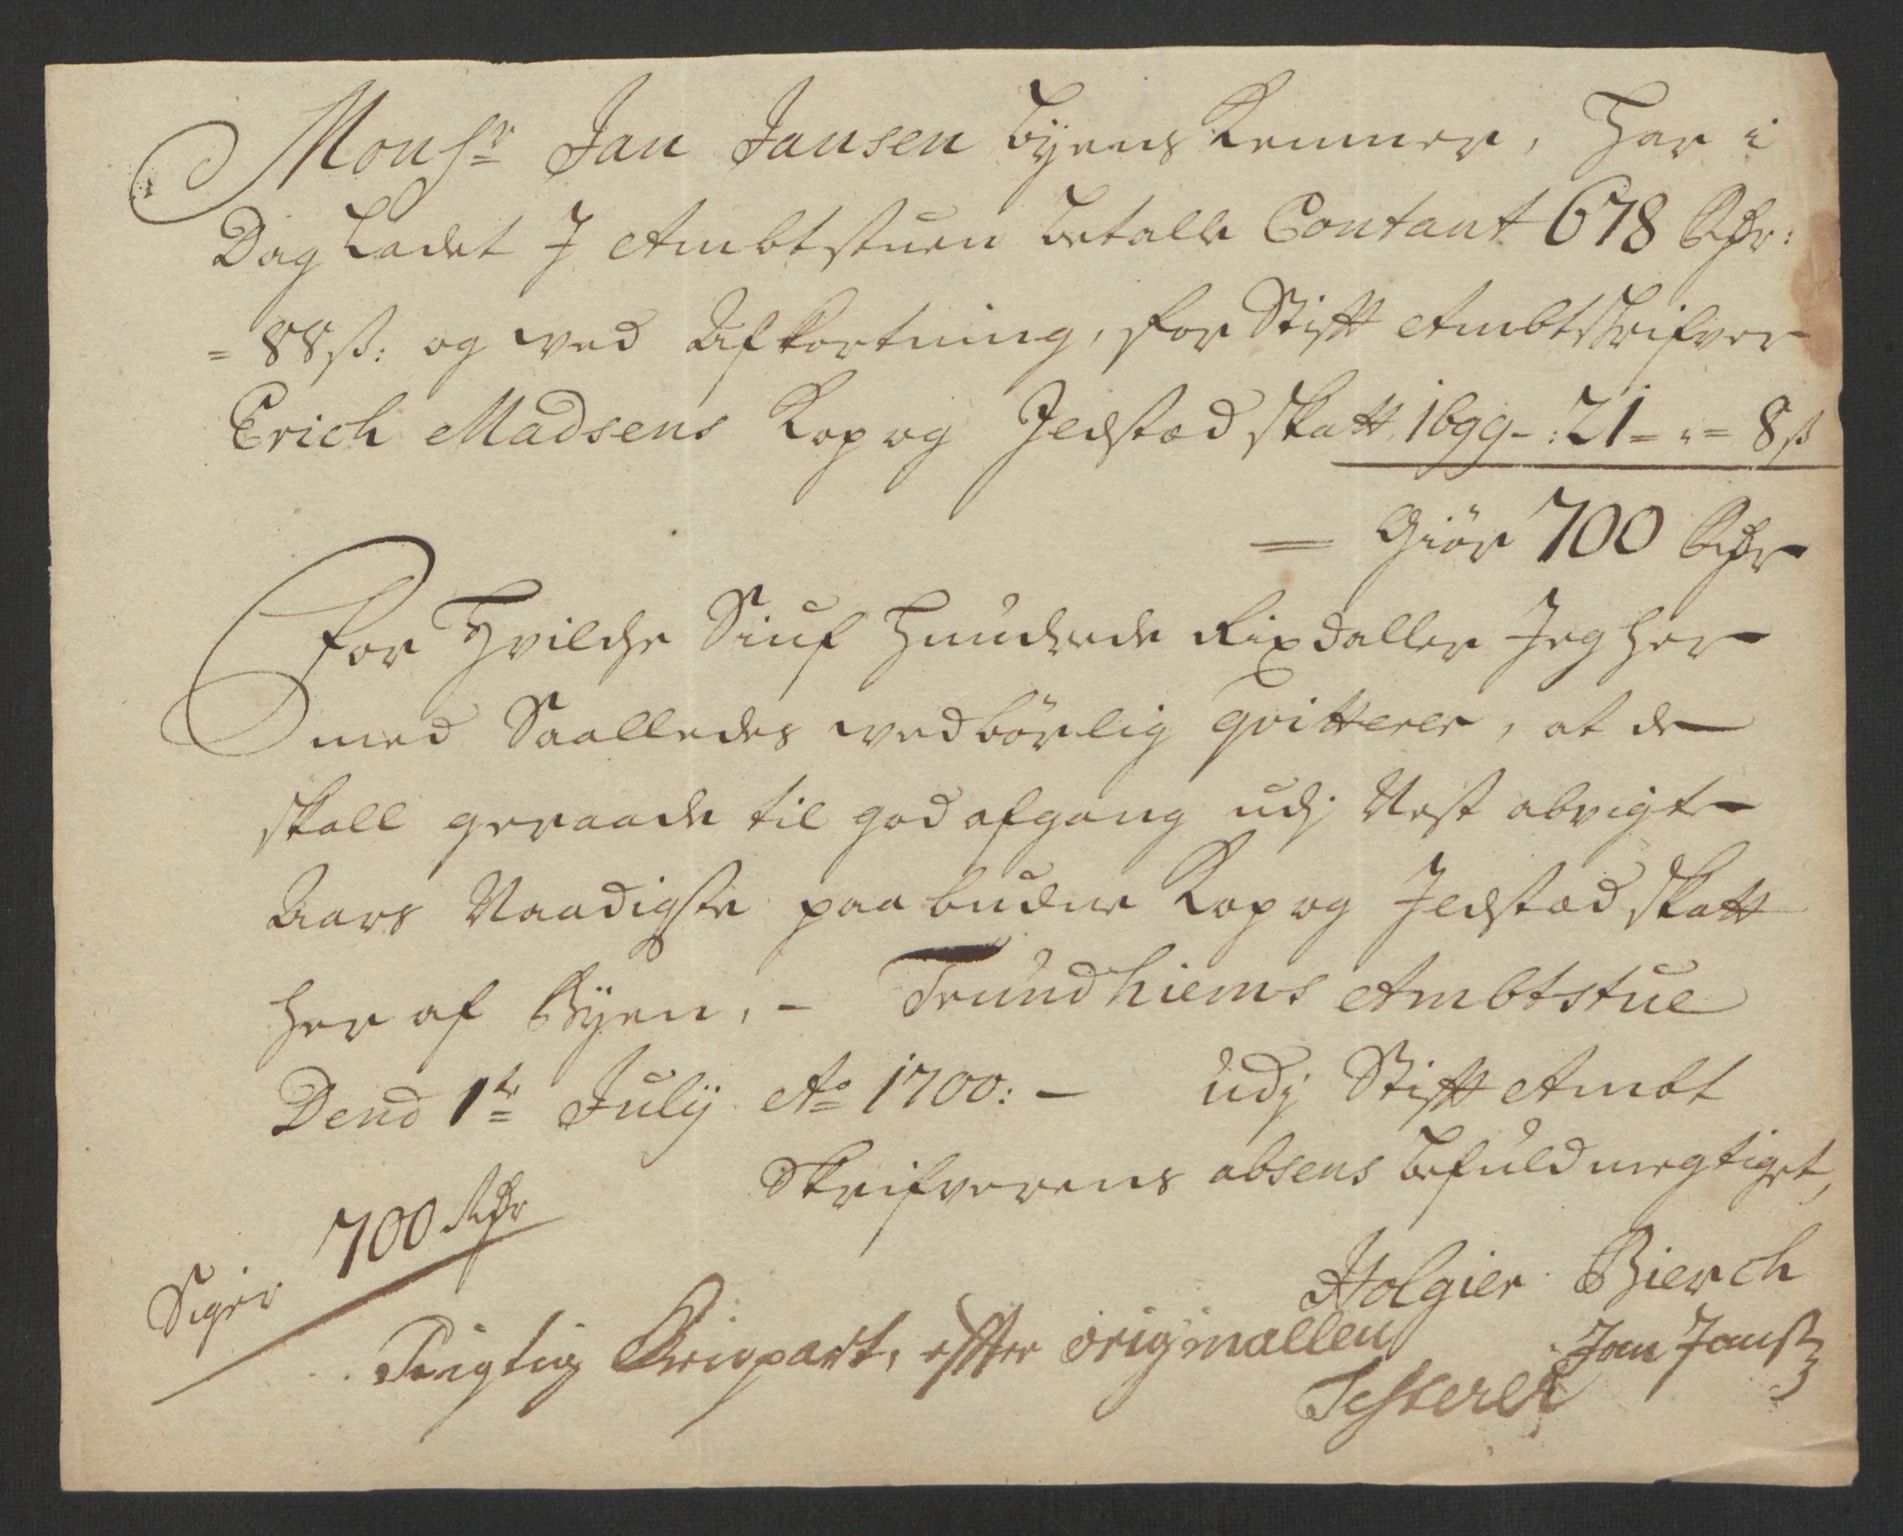 Monsr Jan Jansen byens Kemner, Har i
Dag Ladet J Ambtstuen betalle Contant 678 Rdr:
= 88 ß: og ved Afkortning, for Stifft Ambtskrifver
Erich Madsens Kop og Jldsted skatt 1699 - : 21 = " = 8 ß
= Giör 700 Rdr
For Hvilche Siuf Hundrede Rixdaller Jeg her
med Saalledes vedbörlig qvitterer, at de
skall geraade til god afgang udj Nest abvigte
Aars Naadigste paabudne Kop og Jldsted skatt
her af Byen, - Trundhiems Ambtstue
Dend 1te Julij Ao 1700: - Udj Stifft Ambt
Skrifverens absens befuldmegtiget,
Siger 700 Rdr
Holgier Bierch
Rigtig Genpart, effter originallen
Testerer Jan Jansz